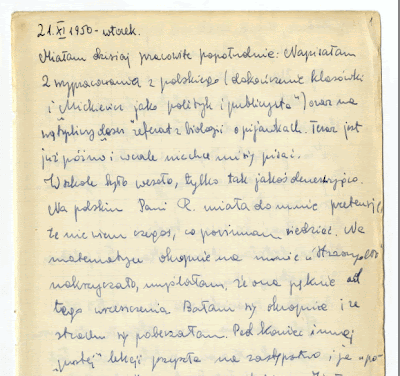 21.XI 1950 - wtorek.
Miałam dzisiaj pracowite popołudnie: Napisałam
2 wypracowania z polskiego (dokończenie klasówki
i „Mickiewicz jako polityk i publicysta") oraz na
referat z biologii o pijawkach. Teraz jest
już późno i wcale nie chce mi się pisać.
W szkole było wesoło, tylko tak jakoś denerwująco.
Na polskim Pani R. miała do mnie pretensję,
że nie wiem czegoś, co powinnam wiedzieć. Na
matematyce okropnie na mnie
nakrzyczała, myślałam, że ona pęknie od
tego wrzeszczenia. Bałam się okropnie i ze
strachu się pobeczałam. Pod koniec innej
lekcji przyszła na zastępstwo i ja „po-